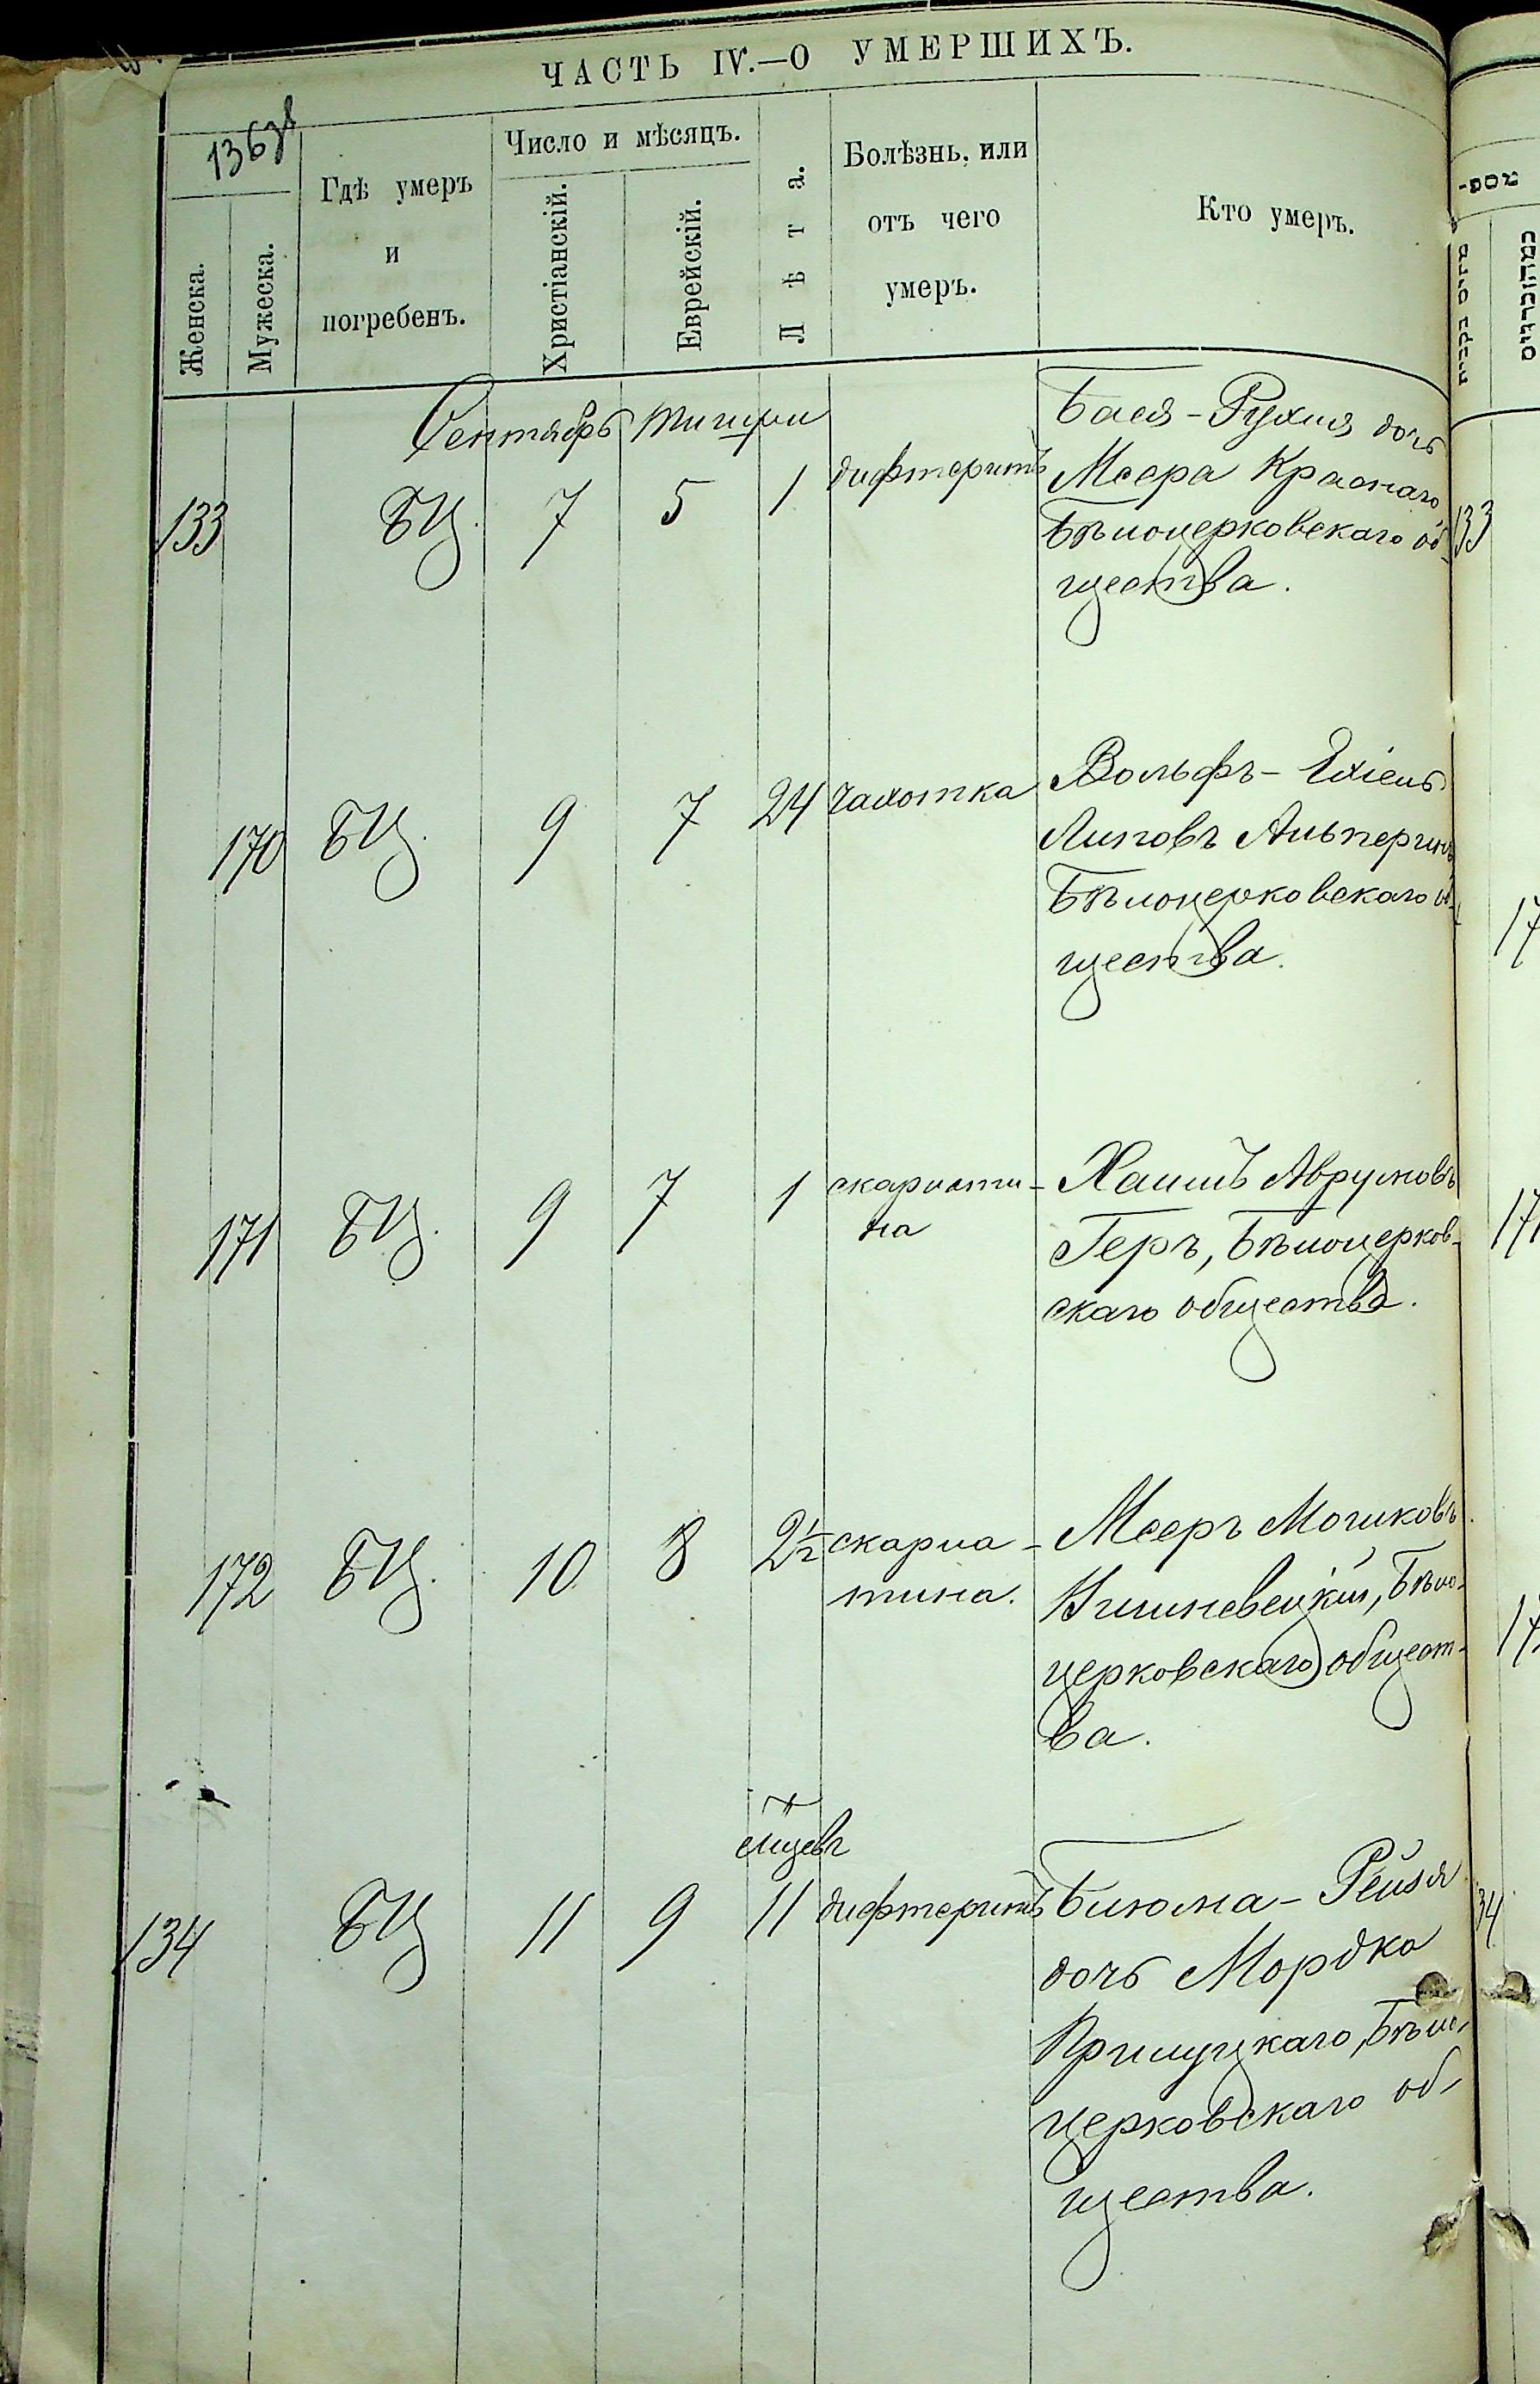 ЧАСТЬ IV.—О УМЕРШИХЪ.
136
Женска.
Мужеска.
Гдѣ умеръ
и
погребенъ.
Число и мѣсяцъ.
Христіанскій.
Еврейскій.
Лѣта.
Болѣзнь, или
отъ чего
умеръ.
Кто умеръ.
Сентябрь Тишри
133 БЦ. 7 5 1 дифтеритъ
Бася-Рухля дочь
Меера Краснаго
Бѣлоцерковскаго об-
щества.
133
170 БЦ. 9 7 24 чахотка
Вольфъ-Ехіель
Липовъ Альперинъ
Бѣлоцерковскаго об-
щества.
17
171 БЦ. 9 7 1 скарлати-
на
Хаимъ Аврумовъ
Геръ, Бѣлоцерков-
скаго общества.
171
172 БЦ. 10 8 2½ скарла-
тина.
Мееръ Мошковъ
Вишневецкій, Бѣло-
церковскаго общест-
ва.
17
134 БЦ 11 9 11 мѣцевъ дифтеритъ
Блюма-Рейзя
дочь Мордка
Прилуцкаго, Бѣло-
церковскаго об-
щества.
34